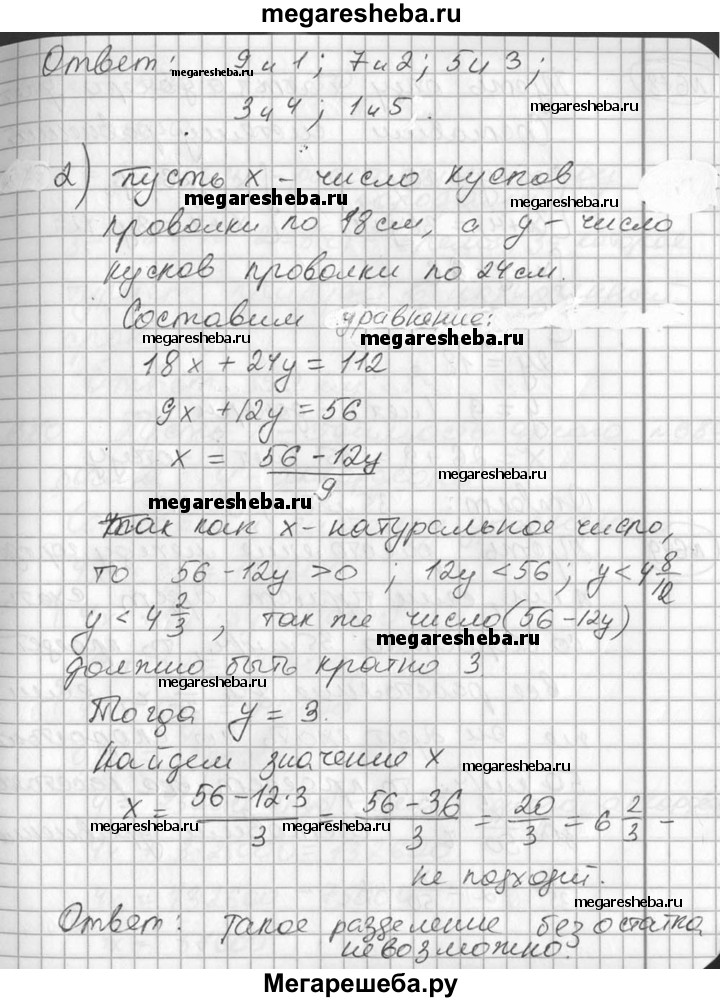 megaresheba.ru
Ответ: 9 и 1; 7 и 2; 5 и 3;
megaresheba.ru
megaresheba.ru
3 и 4; 1 и 5.
2) пусть x - число кусков
megaresheba.ru
проволки по 18 см, а y - число
кусков проволки по 24 см.
Составим уравнение:
megaresheba.ru
megaresheba.ru
18x + 24y = 112
9x + 12y = 56
x = (56 - 12y)/9
megaresheba.ru
megaresheba.ru
так как x - натуральное число,
то 56 - 12y > 0; 12y < 56; y < 4 8/12
megaresheba.ru
y < 4 2/3, так же число (56 - 12y)
megaresheba.ru
должно быть кратно 3
megaresheba.ru
Тогда y = 3.
Найдем значение x
megaresheba.ru
x = (56 - 12·3)/3 = (56 - 36)/3 = 20/3 = 6 2/3 -
megaresheba.ru
megaresheba.ru
megaresheba.ru
не подходит.
megaresheba.ru
Ответ: такое разделение без остатка
невозможно.
megaresheba.ru
Мегарешеба.ру